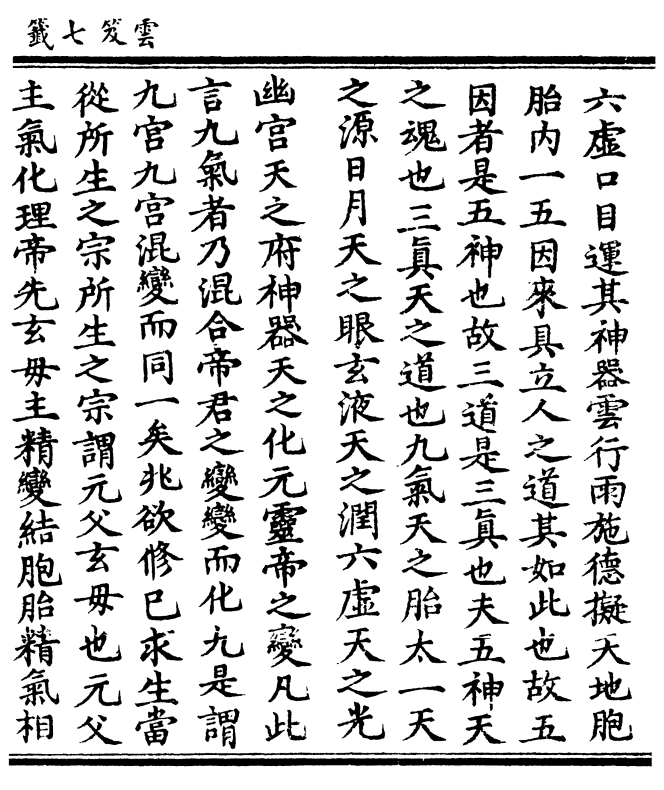 雲笈七籤
六虛口目運其神器雲行雨施德擬天地胞
胎内一五因來具立人之道其如此也故五
因者是五神也故三道是三眞也夫五神天
之魂也三眞天之道也九氣天之胎太一天
之源日月天之眼玄液天之潤六虛天之光
幽宫天之府神器天之化元靈帝之變凡此
言九氣者乃混合帝君之變變而化九是謂
九宫九宫混變而同一矣兆欲修已求生當
從所生之宗所生之宗謂元父玄毋也元父
主氣化理帝先玄毋主精變結胞胎精氣相